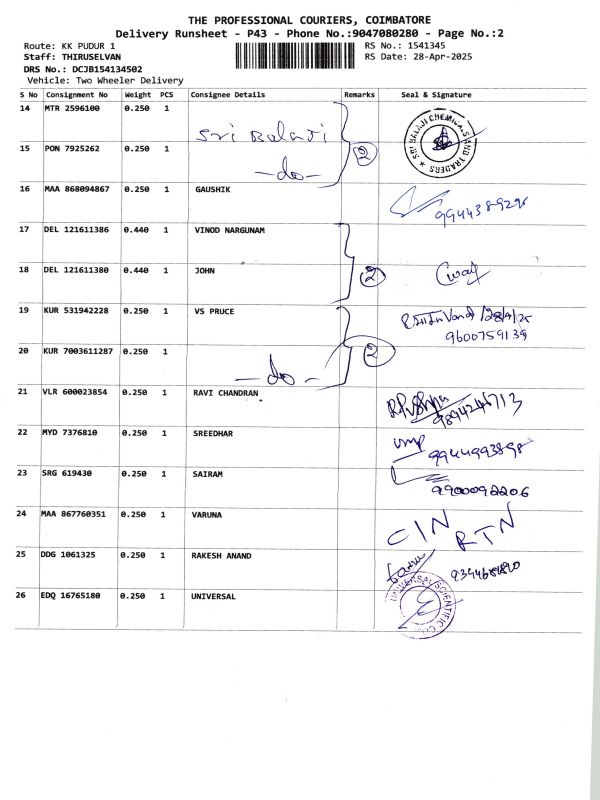 THE PROFESSIONAL COURIERS, COIMBATORE
Delivery Runsheet - P43 - Phone No.:9047080280 - Page No.:2
Route: KK PUDUR 1 RS No.: 1541345
Staff: THIRUSELVAN RS Date: 28-Apr-2025
DRS No.: DCJB154134502
Vehicle: Two Wheeler Delivery
S No Consignment No Weight PCS Consignee Details Remarks Seal & Signature
14 MTR 2596100 0.250 1 Sri Balaji SRI BALAJI CHEMICALS AND TRADERS
15 PON 7925262 0.250 1 -do- 2
16 MAA 868094867 0.250 1 GAUSHIK
17 DEL 121611386 0.440 1 VINOD NARGUNAM
18 DEL 121611380 0.440 1 JOHN 2
19 KUR 531942228 0.250 1 VS PRUCE 28/4/25
9600759139
20 KUR 7003611287 0.250 1 -do- 2
21 VLR 600023854 0.250 1 RAVI CHANDRAN
22 MYD 7376810 0.250 1 SREEDHAR
23 SRG 619430 0.250 1 SAIRAM
9900092206
24 MAA 867760351 0.250 1 VARUNA CIN RTN
25 DDG 1061325 0.250 1 RAKESH ANAND
26 EDQ 16765180 0.250 1 UNIVERSAL UNIVERSAL SCIENTIFIC CO